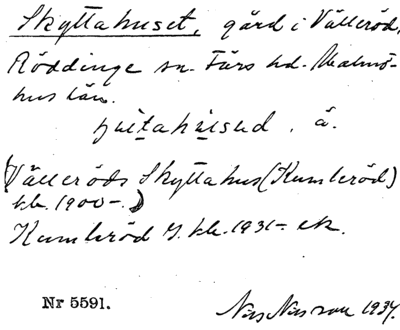 Skyttahuset, gård i Välleröd,
Röddinge sn. Färs hd. Malmö-
hus län.
á.
(Välleröds Skyttahus (Kumleröd)
kb. 1900-.)
Kumleröd 7. kb. 1931-. ek.
Nr 5591.
Nils Nilsson 1934.